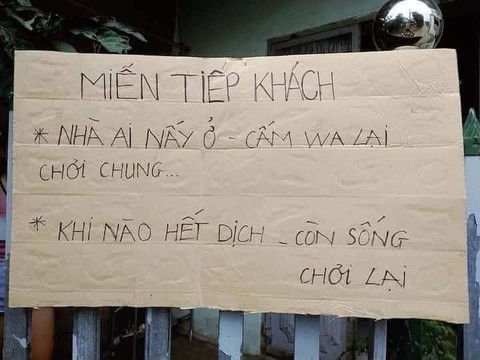 MIỄN TIẾP KHÁCH
* NHÀ AI NẤY Ở - CẤM WA LẠI
CHƠI CHUNG...
* KHI NÀO HẾT DỊCH - CÒN SỐNG
CHƠI LẠI